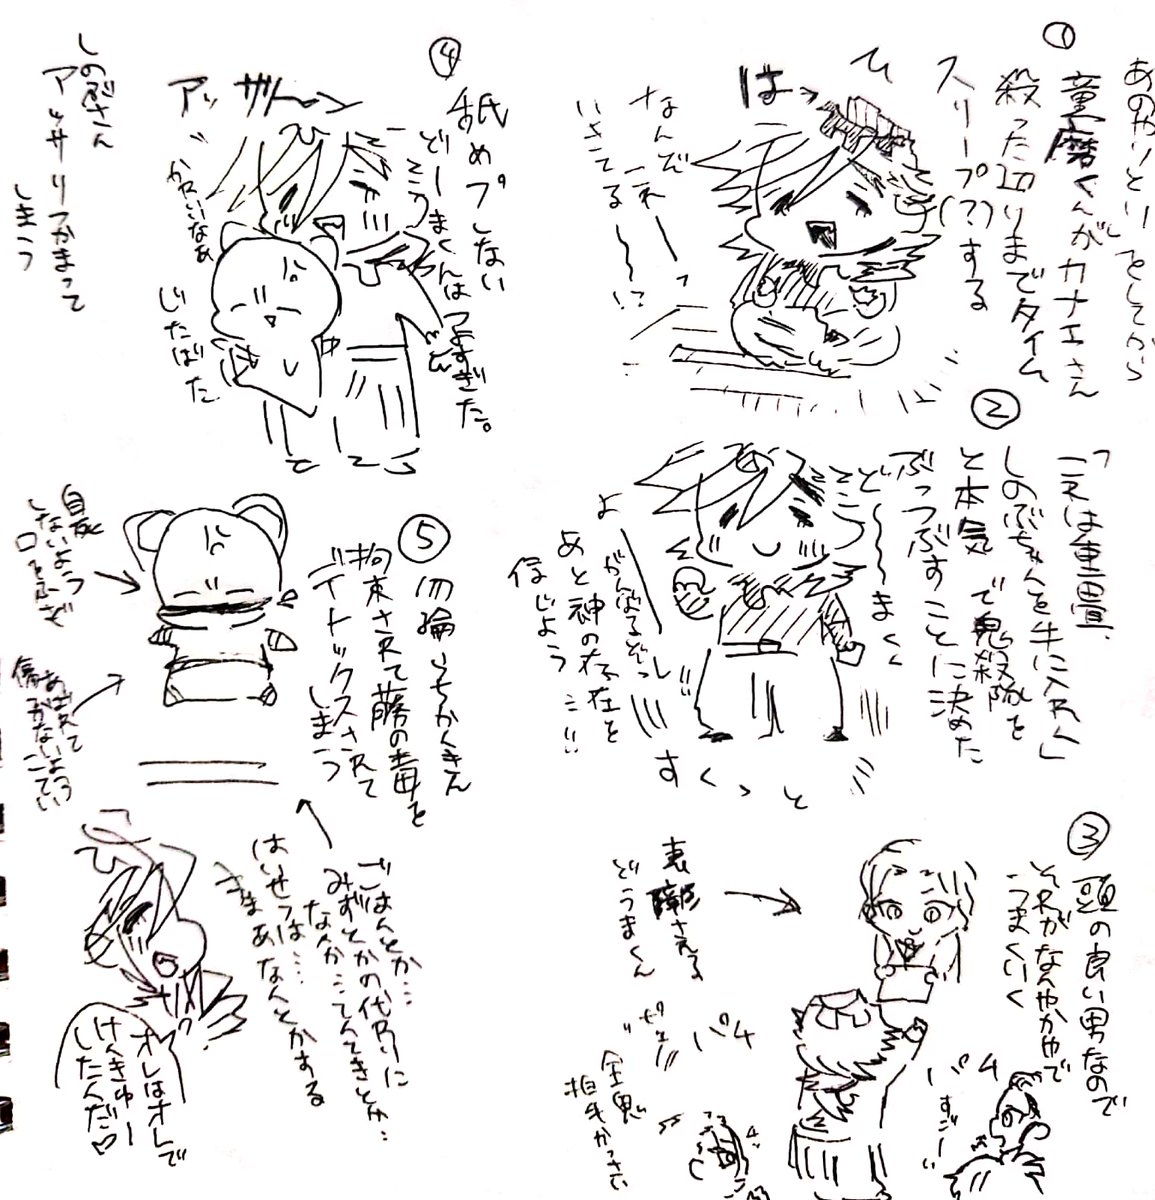 ①
あのやりとりをしてから
童磨くんがカナエさん
殺った辺りまでタイム
スリープ(?)する
はっ
なんだこれーっ
いきてる〜〜!?
②
「これは重畳、
しのぶちゃんを手に入れん」
と本気で鬼殺隊を
ぶっつぶすことに決めた
ど〜〜まくん
よーーーし
がんばるぞっ
あと神の存在を
信じよう…!!
すくっと
③
頭の良い男なので
それがなんやかやで
うまくいく
表彰される
どうまくん
パチ
パチ
すごーい
④
舐めプしない
どーまくんはつよすぎた。
アッサリ
かわいいなあ
じたばた
しのぶさん
アッサリつかまって
しまう
⑤
勿論しっかりきん
拘束されて藤の毒を
デトックスされて
しまう
自死
しないよう
口をふさぎ
あばれて
傷つかないよう
こてい
ごはんとか…
みずとかの代わりに
なんか…てんてきとか…
はいせつは…
まあなんとかする
オレはオレで
けんきゅー
したんだ♡